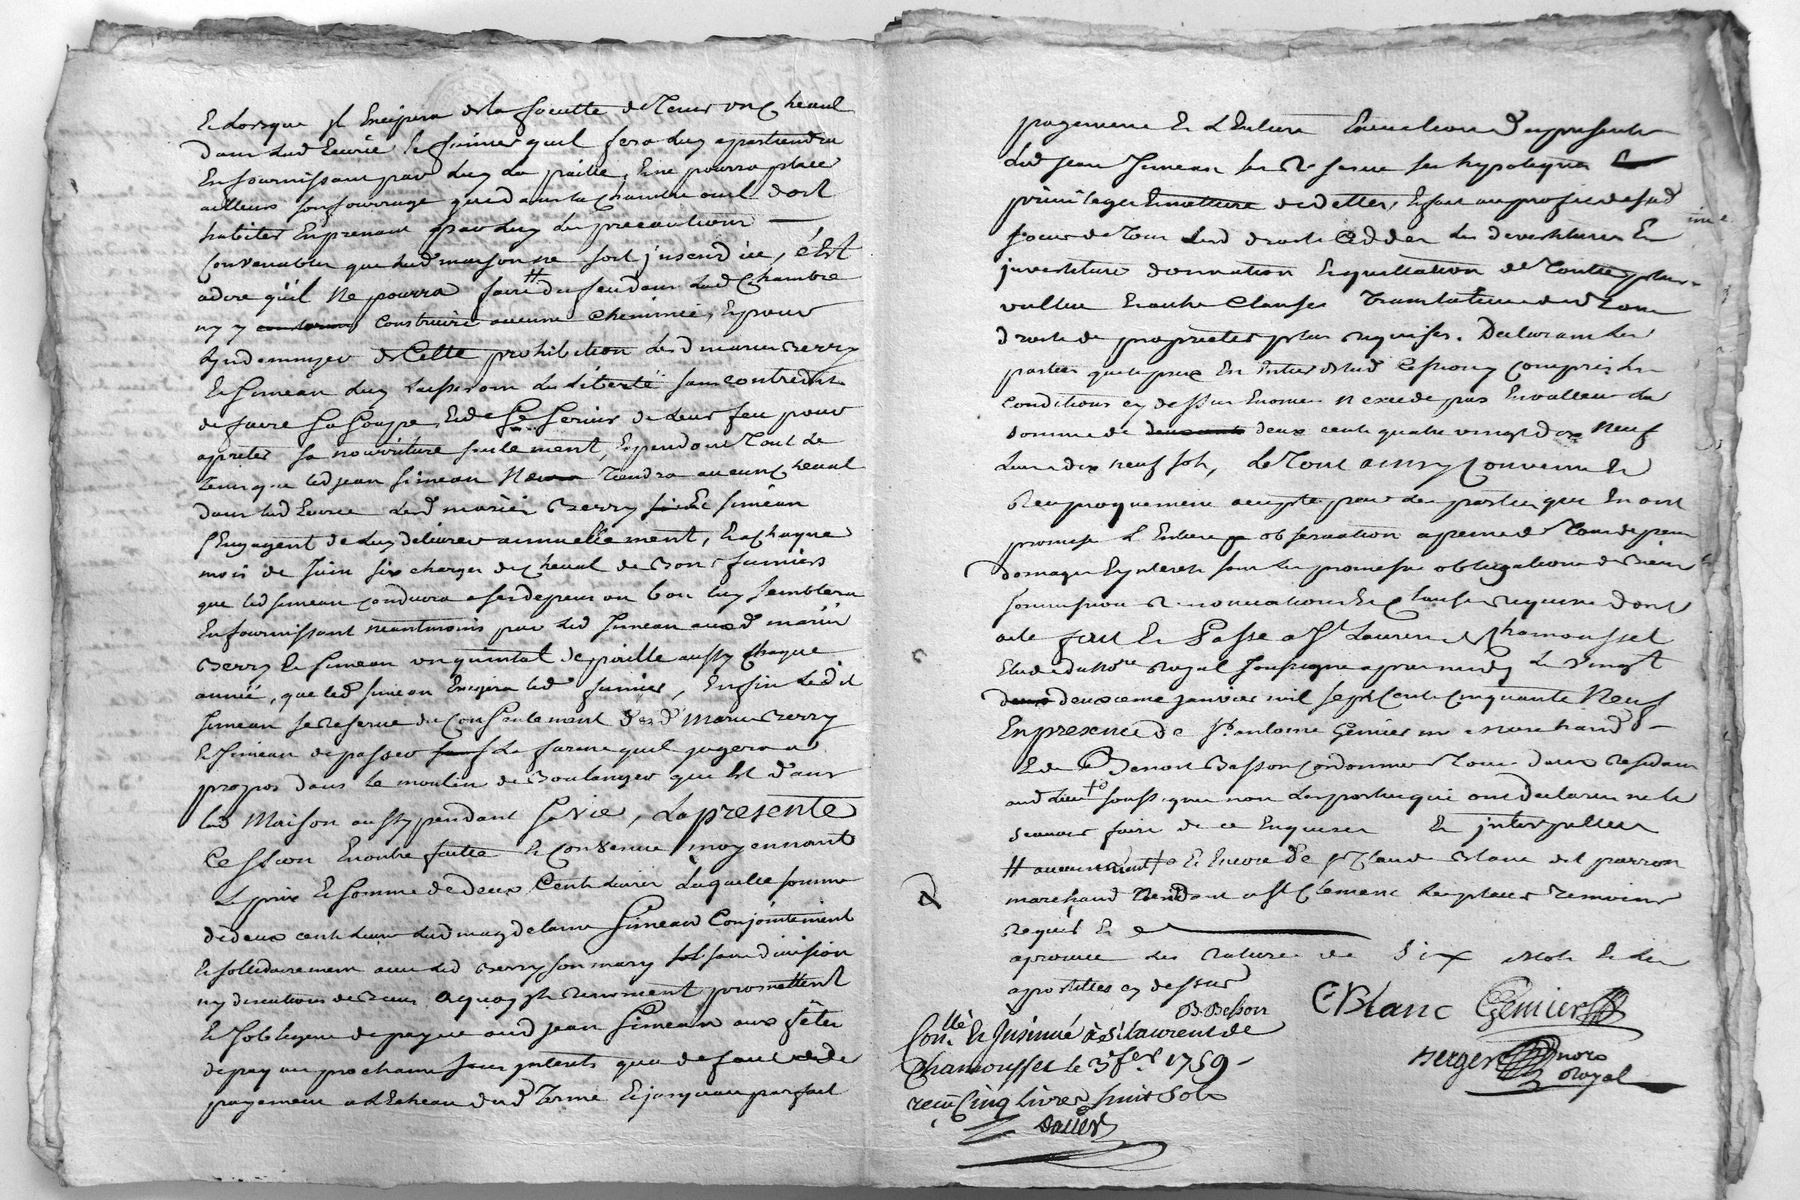 Et lorsque il Encipera de la faculte de Tenir un Cheval
dans lad Ecurie le fumier quil fera luy apartiendra
En fournissant par luy La paille, Et ne pourra placer
ailleurs son fourrage que dans la Chambre ou il doit
habiter En prenant par luy les precautions
Convenables que lad maison ne soit jncendiée, c'est
adire qu'il Ne pourra faire # du feu dans lad Chambre
ny y construire aucune Cheminée, Et pour
lyndemnizer de Cette prohibition lesd mariés
Et Simean luy laisseront la Liberté sans contredit
de faire Sa Soupe, Et de Se Servir de leur feu pour
apreter sa nourriture seulement, Et pendant Tout le
Tems que led jean Simean Ne Tiendra aucun Cheval
dans lad Ecurie lesd mariés Et Simean
s'Engagent de luy delivrer annuellement, Et a Chaque
mois de Juin six charges de Cheval de Bons fumiers
que led Simean conduira a ses depens ou bon luy Semblera
En fournissant neantmoins par led Simean auxd mariés
Et Simean un quintal de paille aussy Chaque
année, que led Simean Exigera led fumier, Enfin Ledit
Simean se Reserve du Consentement desd Mariés
Et Simean de passer La farine quil jugera a
propos dans le moulin de Boulanger qui Est dans
lad Maison aussy pendant Sa Vie, La presente
Cession Enoutre faitte Et Convenue moyennant
Le prix Et Somme de deux Cents Livres Laquelle somme
de deux cents livres lad magdelaine Simean Conjointement
Et sollidairement avec led son mary sans division
ny discution de biens a quoy ils Renoncent promettent
Et Sobligent de payer aud jean Simean aux fêtes
de prochaine sans jnterets qua deffaut de
payement a L'Echeance dud Terme Et jusquau parfait
payement Et L'Entiere Execution des presentes
led jean Simean se Reserve ses hypoteques
privileges de dettes, Et fait au profit desd
de Tous Lesd droits Cedés Les devestitures Et
jnvestiture donnation Et quittation de Toutte plus
vallue Et autres Clauses Translatives de Tous
droits de proprietés plus requises. Declarant les
parties que le prix En Entier de lad Cession y compris les
conditions cy dessus Enoncées n'excede pas En valleur la
somme de deux cents quatre vingt dix Neuf
Livres dix neuf sols, Le Tout ainsy Convenu Et
Reciproquement accepté par les parties qui En ont
promis L'Entiere observation a peine de Tous depens
domages Et jnterets sous les promesses obligations de biens
soumissions Renonciations Et Clauses requises dont
acte fait Et Passé a St Laurent de Chamousset
Etude du Nore Royal Soussigné apres midy Le Vingt
deuxieme janvier mil sept Cents Cinquante Neuf
En presence de Sr antoine Genier marchand
Et de Benoit Basson Cordonnier Tous deux Residans
aud Lieu soussignés non Les parties qui ont declarés ne le
scavoir faire de ce Enquises Et jnterpellées
# aucunement Et Encore de Sr Claude Blanc
marchand Residant a St Clement Les places Temoins
Requis Et
aprouvé les Ratures de Six Mots Et les
apostilles cy dessus
B. Besson
C. Blanc Genier
Berger Nore
Royal
Conllé Et Jnsinué à St Laurent de
Chamousset le 3e fer 1759
reçu Cinq livres huit Sols